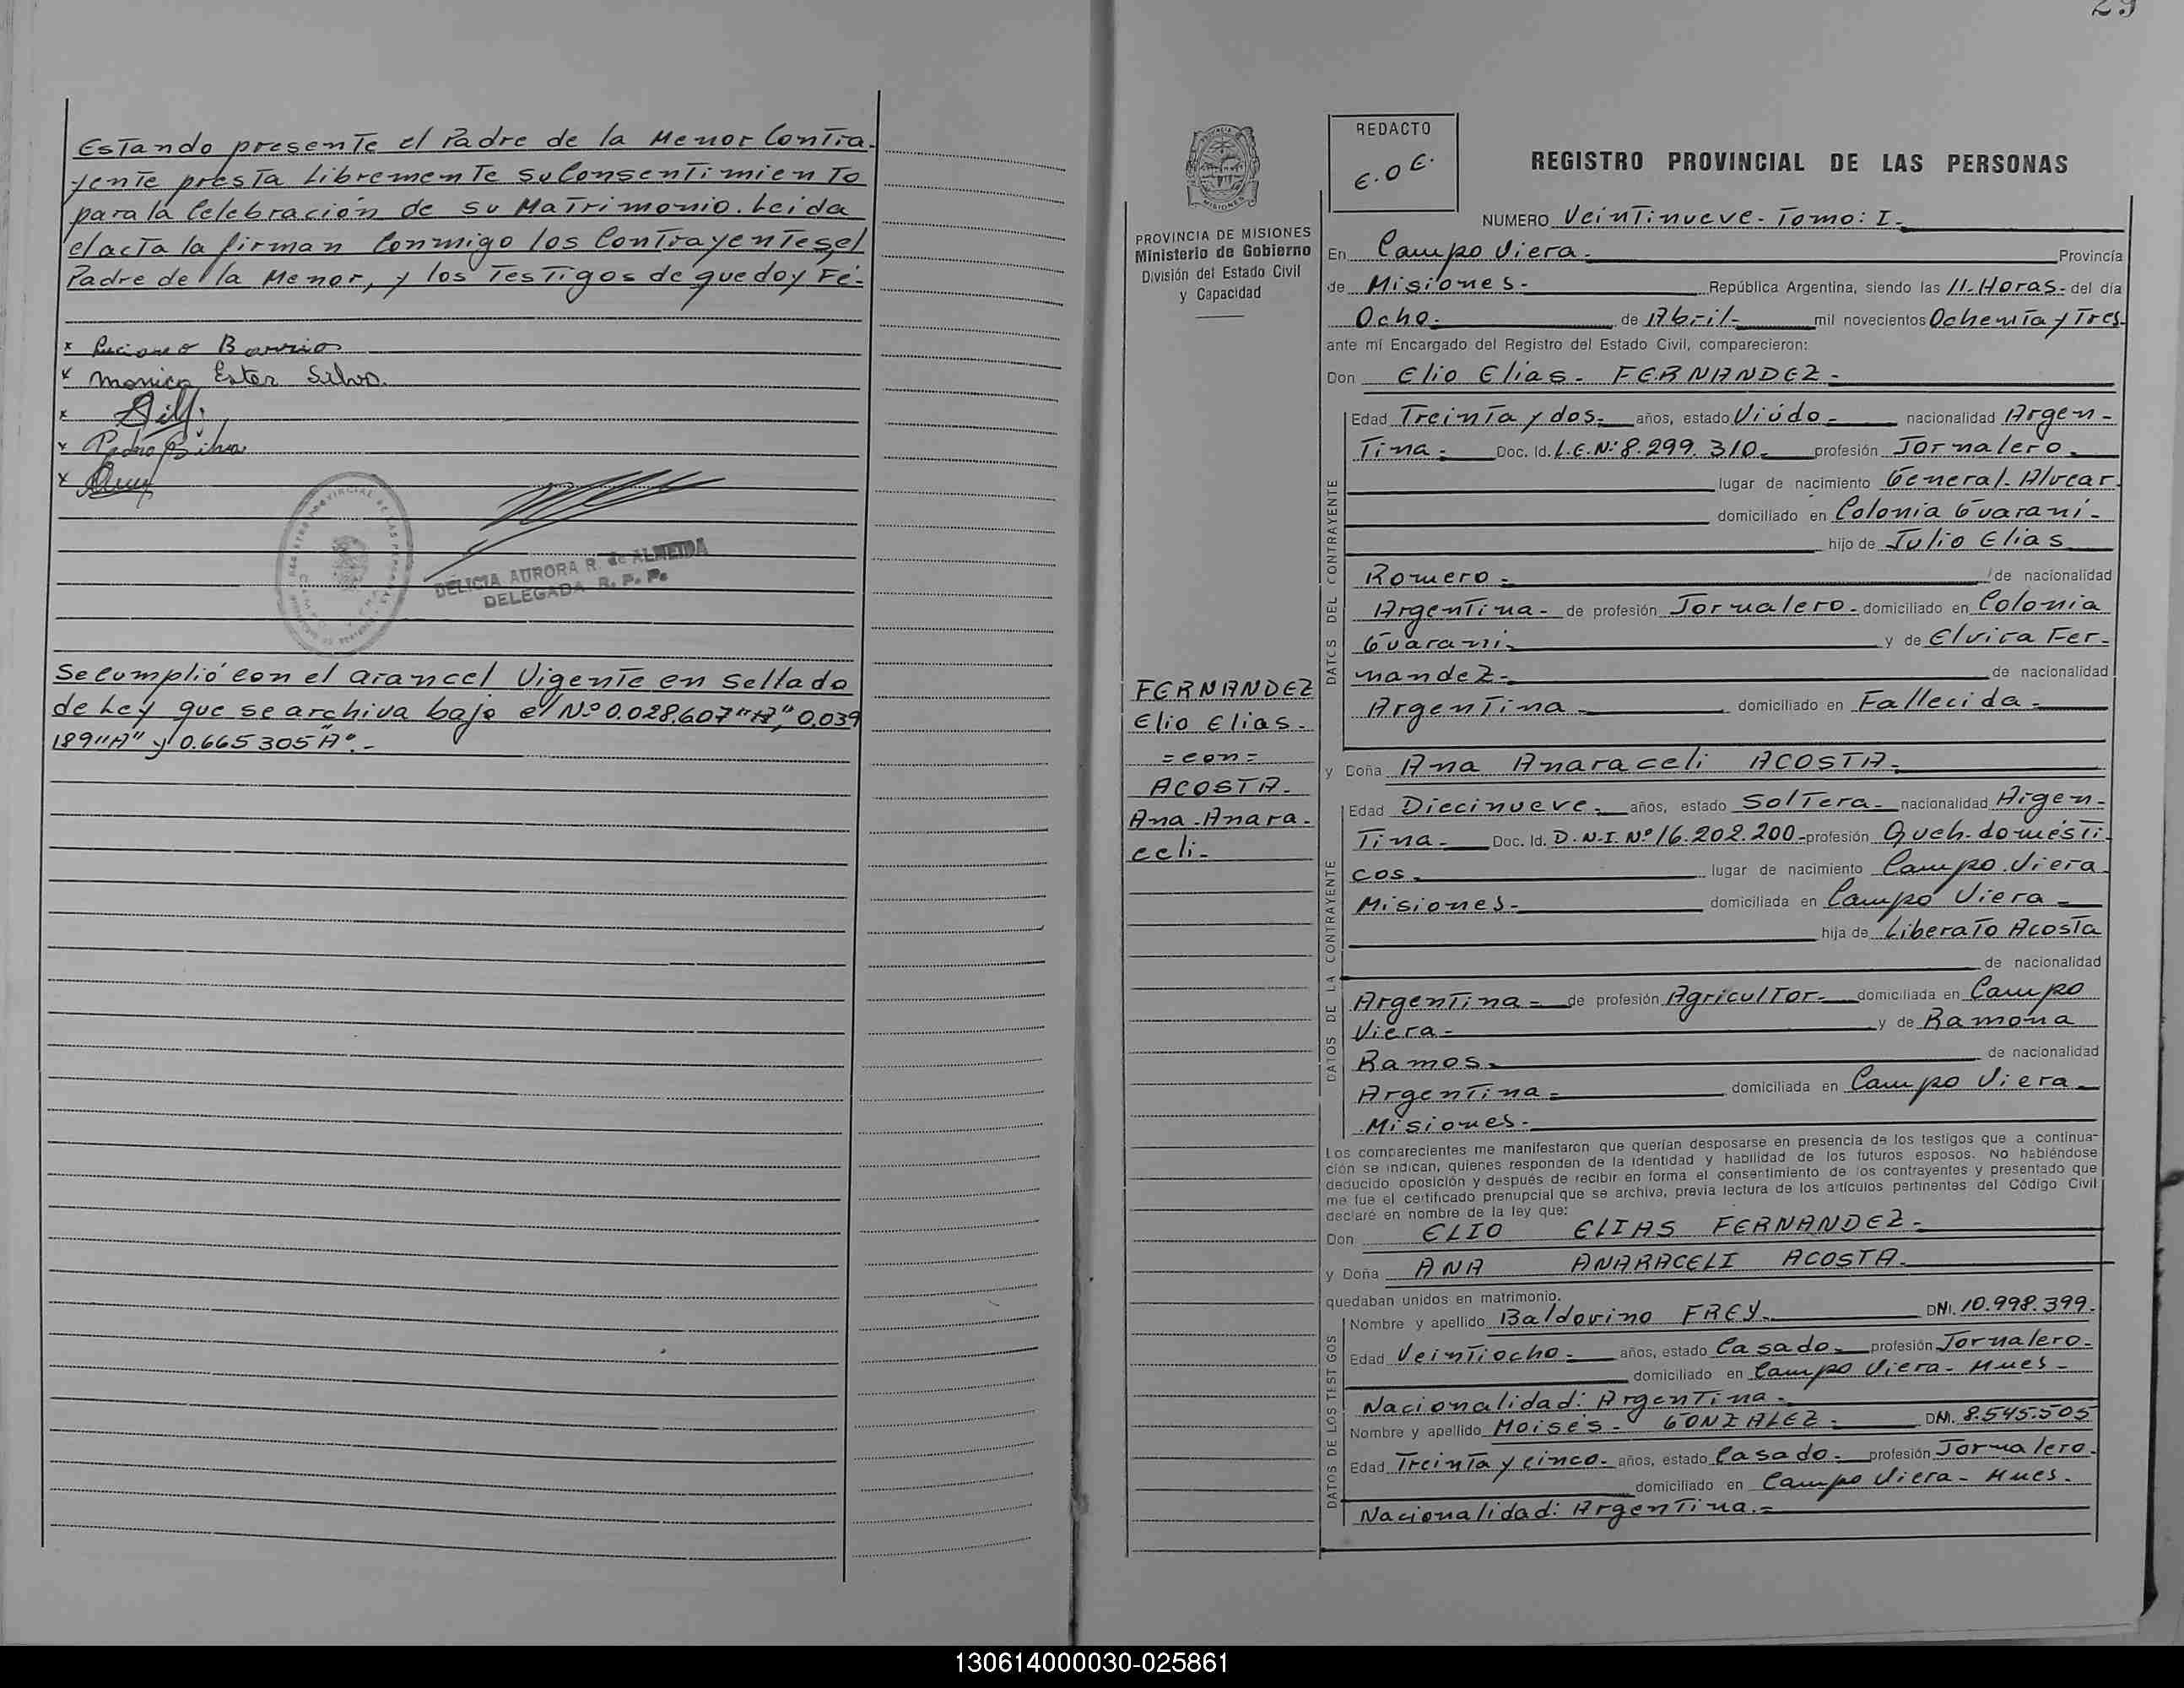 29
Estando presente el Padre de la Menor Contra-
yente presta Libremente su Consentimiento
para la Celebración de su Matrimonio. Leida
el acta la firman Conmigo los Contrayentes, el
Padre de la Menor, y los Testigos de que doy Fé.-
x Luciano Barrios
x Monica Ester Silva.
x
x Pedro Silva
x
DELICIA AURORA R. de ALMEIDA
DELEGADA R. P. P.
Se Cumplió con el arancel Vigente en sellado
de Ley que se archiva bajo el Nº 0.028.607 "A", 0.039
189 "A" y 0.665 305 Aº.-
PROVINCIA DE MISIONES
Ministerio de Gobierno
División del Estado Civil
y Capacidad
FERNANDEZ
Elio Elias.-
=con=
ACOSTA.-
Ana-Anara-
celi-
REDACTO
E.O.E.
REGISTRO PROVINCIAL DE LAS PERSONAS
NUMERO Veintinueve- Tomo: I-
En Campo Viera.- Provincia
de Misiones- República Argentina, siendo las 11-Horas- del día
Ocho- de Abril- mil novecientos Ochenta y Tres-
ante mí Encargado del Registro del Estado Civil, comparecieron:
Don Elio Elias- FERNANDEZ-
DATOS DEL CONTRAYENTE
Edad Treinta y dos- años, estado Viúdo- nacionalidad Argen-
Tina- Doc. Id. L.E.Nº 8.299.310- profesión Jornalero-
lugar de nacimiento General-Alvear
domiciliado en Colonia Guaraní-
hijo de Julio Elias
Romero- de nacionalidad
Argentina- de profesión Jornalero- domiciliado en Colonia
Guaraní- y de Elvira Fer-
nandez- de nacionalidad
Argentina- domiciliado en Fallecida-
y Doña Ana Anaraceli ACOSTA-
DATOS DE LA CONTRAYENTE
Edad Diecinueve- años, estado Soltera- nacionalidad Argen-
Tina- Doc. Id. D.N.I. Nº 16.202.200- profesión Queh-domésti-
cos- lugar de nacimiento Campo Viera
Misiones- domiciliada en Campo Viera-
hija de Liberato Acosta
de nacionalidad
Argentina- de profesión Agricultor- domiciliada en Campo
Viera- y de Ramona
Ramos- de nacionalidad
Argentina- domiciliada en Campo Viera-
Misiones-
Los comparecientes me manifestaron que querían desposarse en presencia de los testigos que a continua-
ción se indican, quienes responden de la identidad y habilidad de los futuros esposos. No habiéndose
deducido oposición y después de recibir en forma el consentimiento de los contrayentes y presentado que
me fue el certificado prenupcial que se archiva, previa lectura de los artículos pertinentes del Código Civil
declaré en nombre de la ley que:
Don ELIO ELIAS FERNANDEZ-
y Doña ANA ANARACELI ACOSTA-
quedaban unidos en matrimonio.
DATOS DE LOS TESTIGOS
Nombre y apellido Baldovino FREY- DNI. 10.998.399-
Edad Veintiocho- años, estado Casado- profesión Jornalero-
domiciliado en Campo Viera- Mnes-
Nacionalidad: Argentina-
Nombre y apellido Moisés- GONZALEZ- DNI. 8.545.505
Edad Treinta y cinco- años, estado Casado- profesión Jornalero-
domiciliado en Campo Viera- Mnes.
Nacionalidad: Argentina.-
130614000030-025861